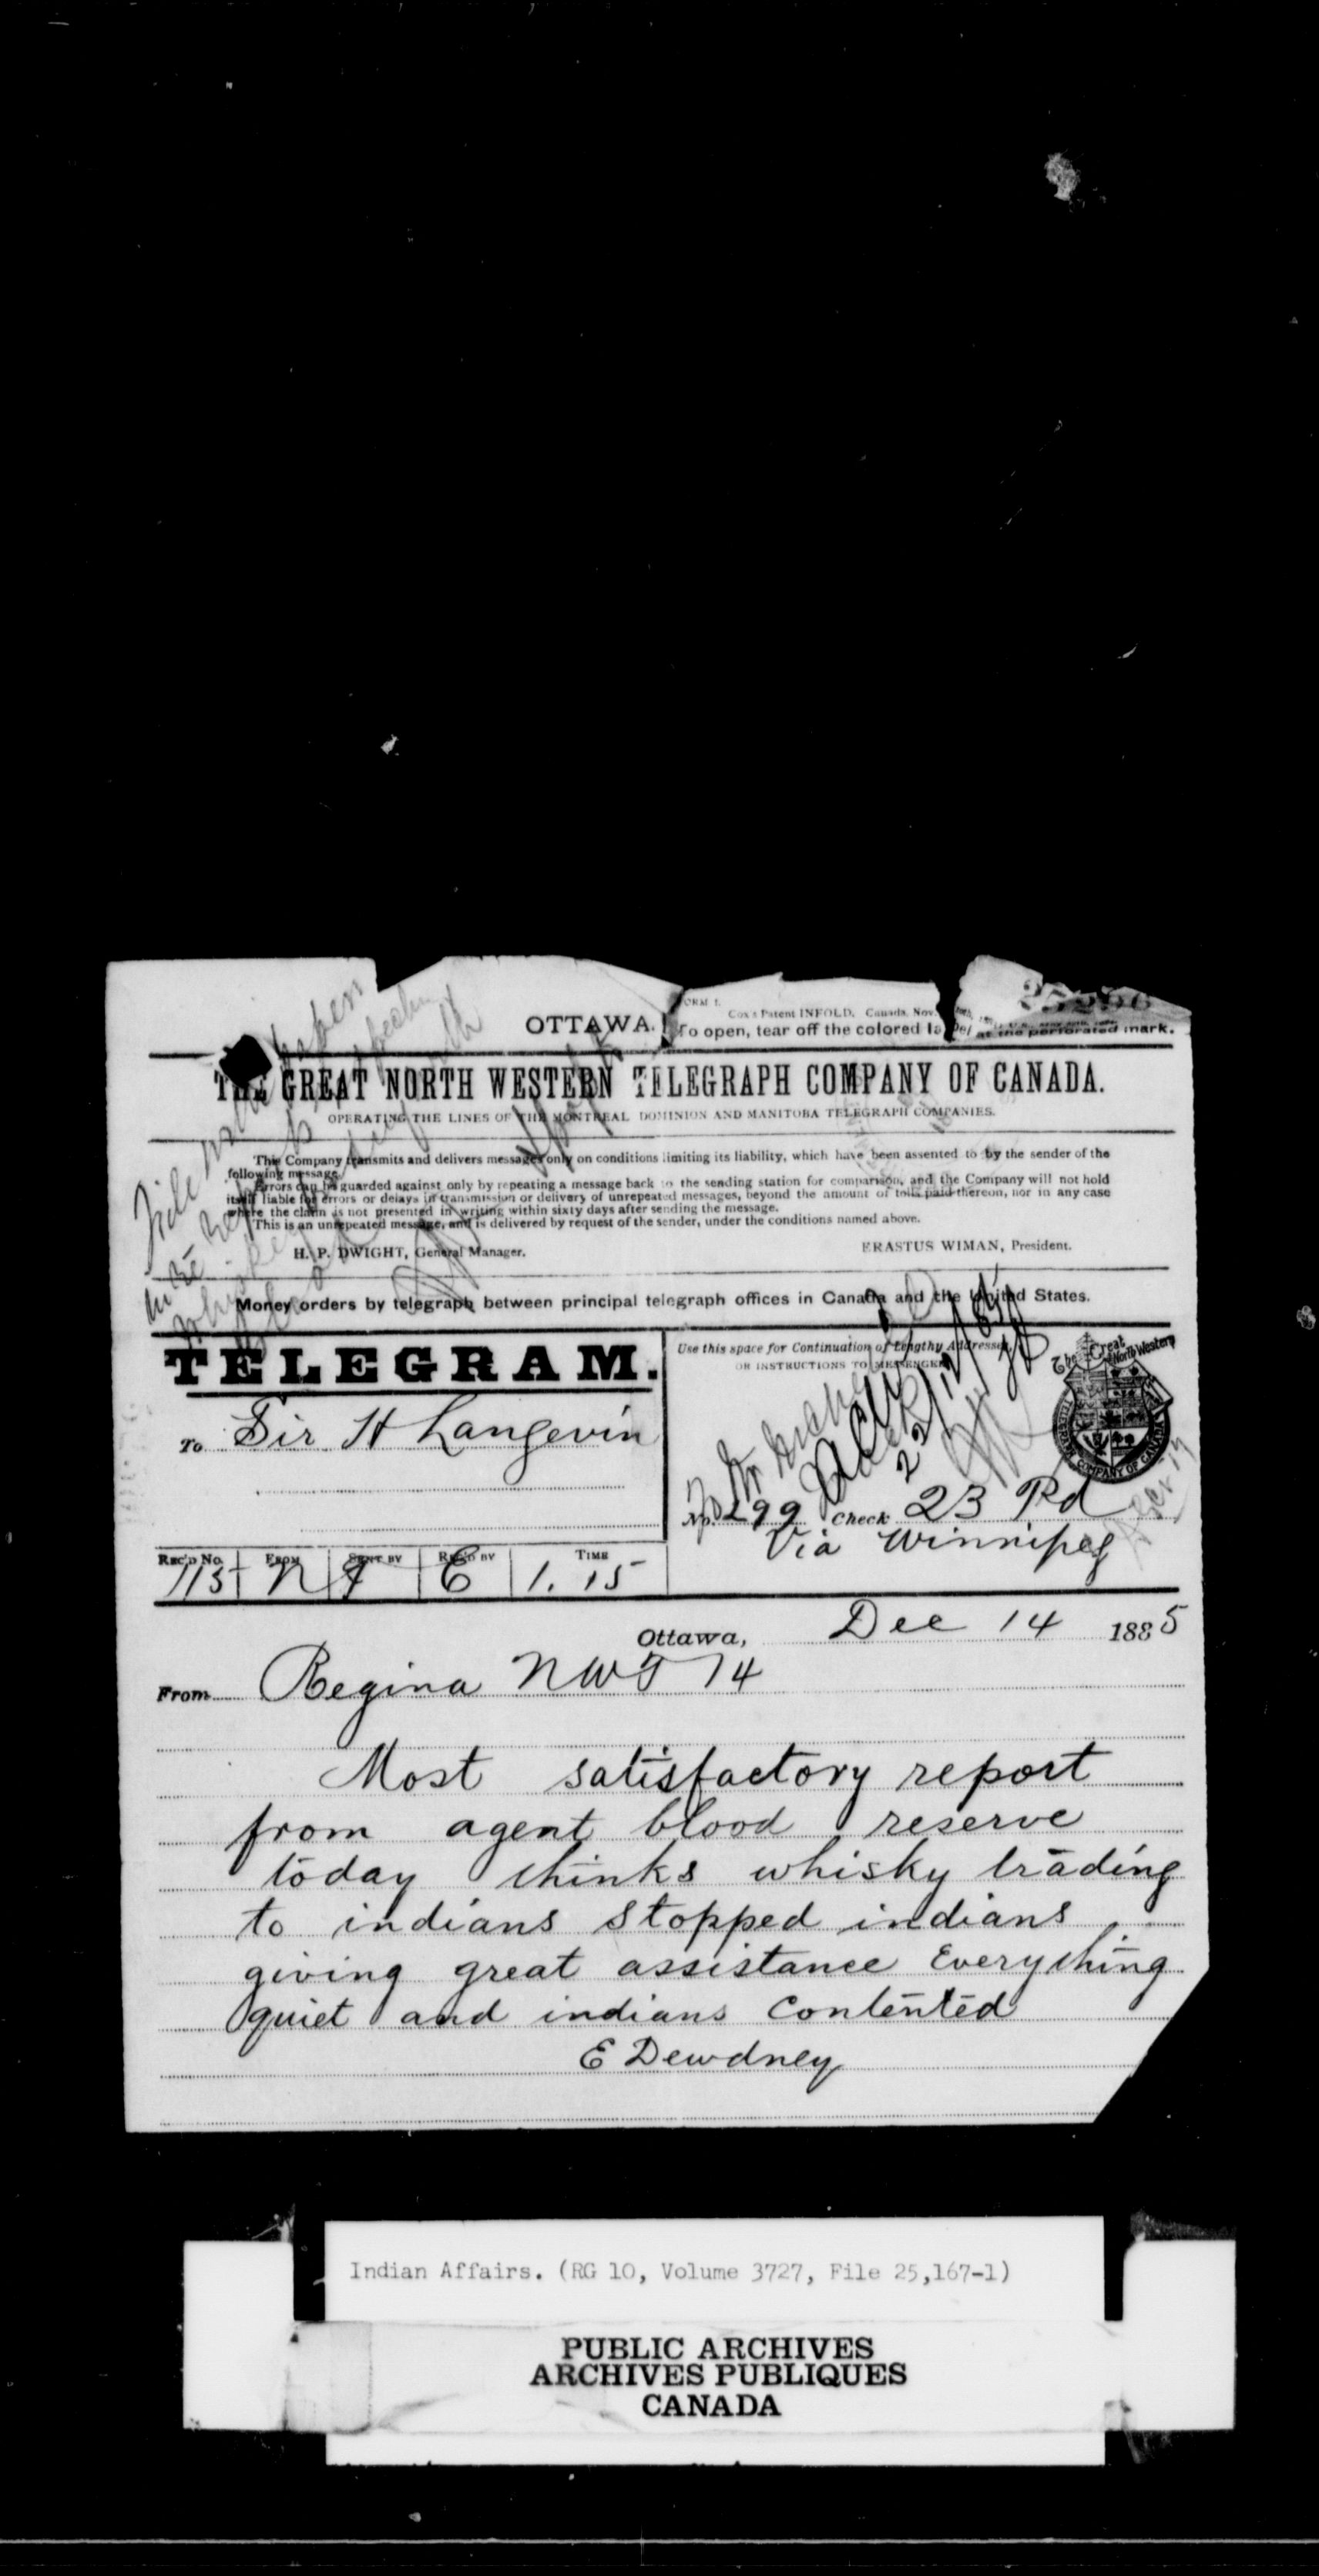 FORM 1.
Cox's Patent INFOLD, Canada, Nov.
OTTAWA. To open, tear off the colored label at the perforated mark.
THE GREAT NORTH WESTERN TELEGRAPH COMPANY OF CANADA.
OPERATING THE LINES OF THE MONTREAL DOMINION AND MANITOBA TELEGRAPH COMPANIES.
This Company transmits and delivers messages only on conditions limiting its liability, which have been assented to by the sender of the
following message.
Errors can be guarded against only by repeating a message back to the sending station for comparison, and the Company will not hold
itself liable for errors or delays in transmission or delivery of unrepeated messages, beyond the amount of tolls paid thereon, nor in any case
where the claim is not presented in writing within sixty days after sending the message.
This is an unrepeated message, and is delivered by request of the sender, under the conditions named above.
H. P. DWIGHT, General Manager. ERASTUS WIMAN, President.
Money orders by telegraph between principal telegraph offices in Canada and the United States.
TELEGRAM.
Use this space for Continuation of Lengthy Addresses,
OR INSTRUCTIONS TO MESSENGER
The Great North Western
TELEGRAPH COMPANY OF CANADA
To Sir H Langevin
No. 299 Check 23 Pd
Via Winnipeg
Rec'd No. FROM SENT BY REC'D BY TIME
115 N F E 1.15
Ottawa, Dec 14 1885
From Regina NWT 14
Most satisfactory report
from agent blood reserve
today thinks whisky trading
to indians stopped indians
giving great assistance Everything
quiet and indians Contented
E Dewdney
Indian Affairs. (RG 10, Volume 3727, File 25,167-1)
PUBLIC ARCHIVES
ARCHIVES PUBLIQUES
CANADA